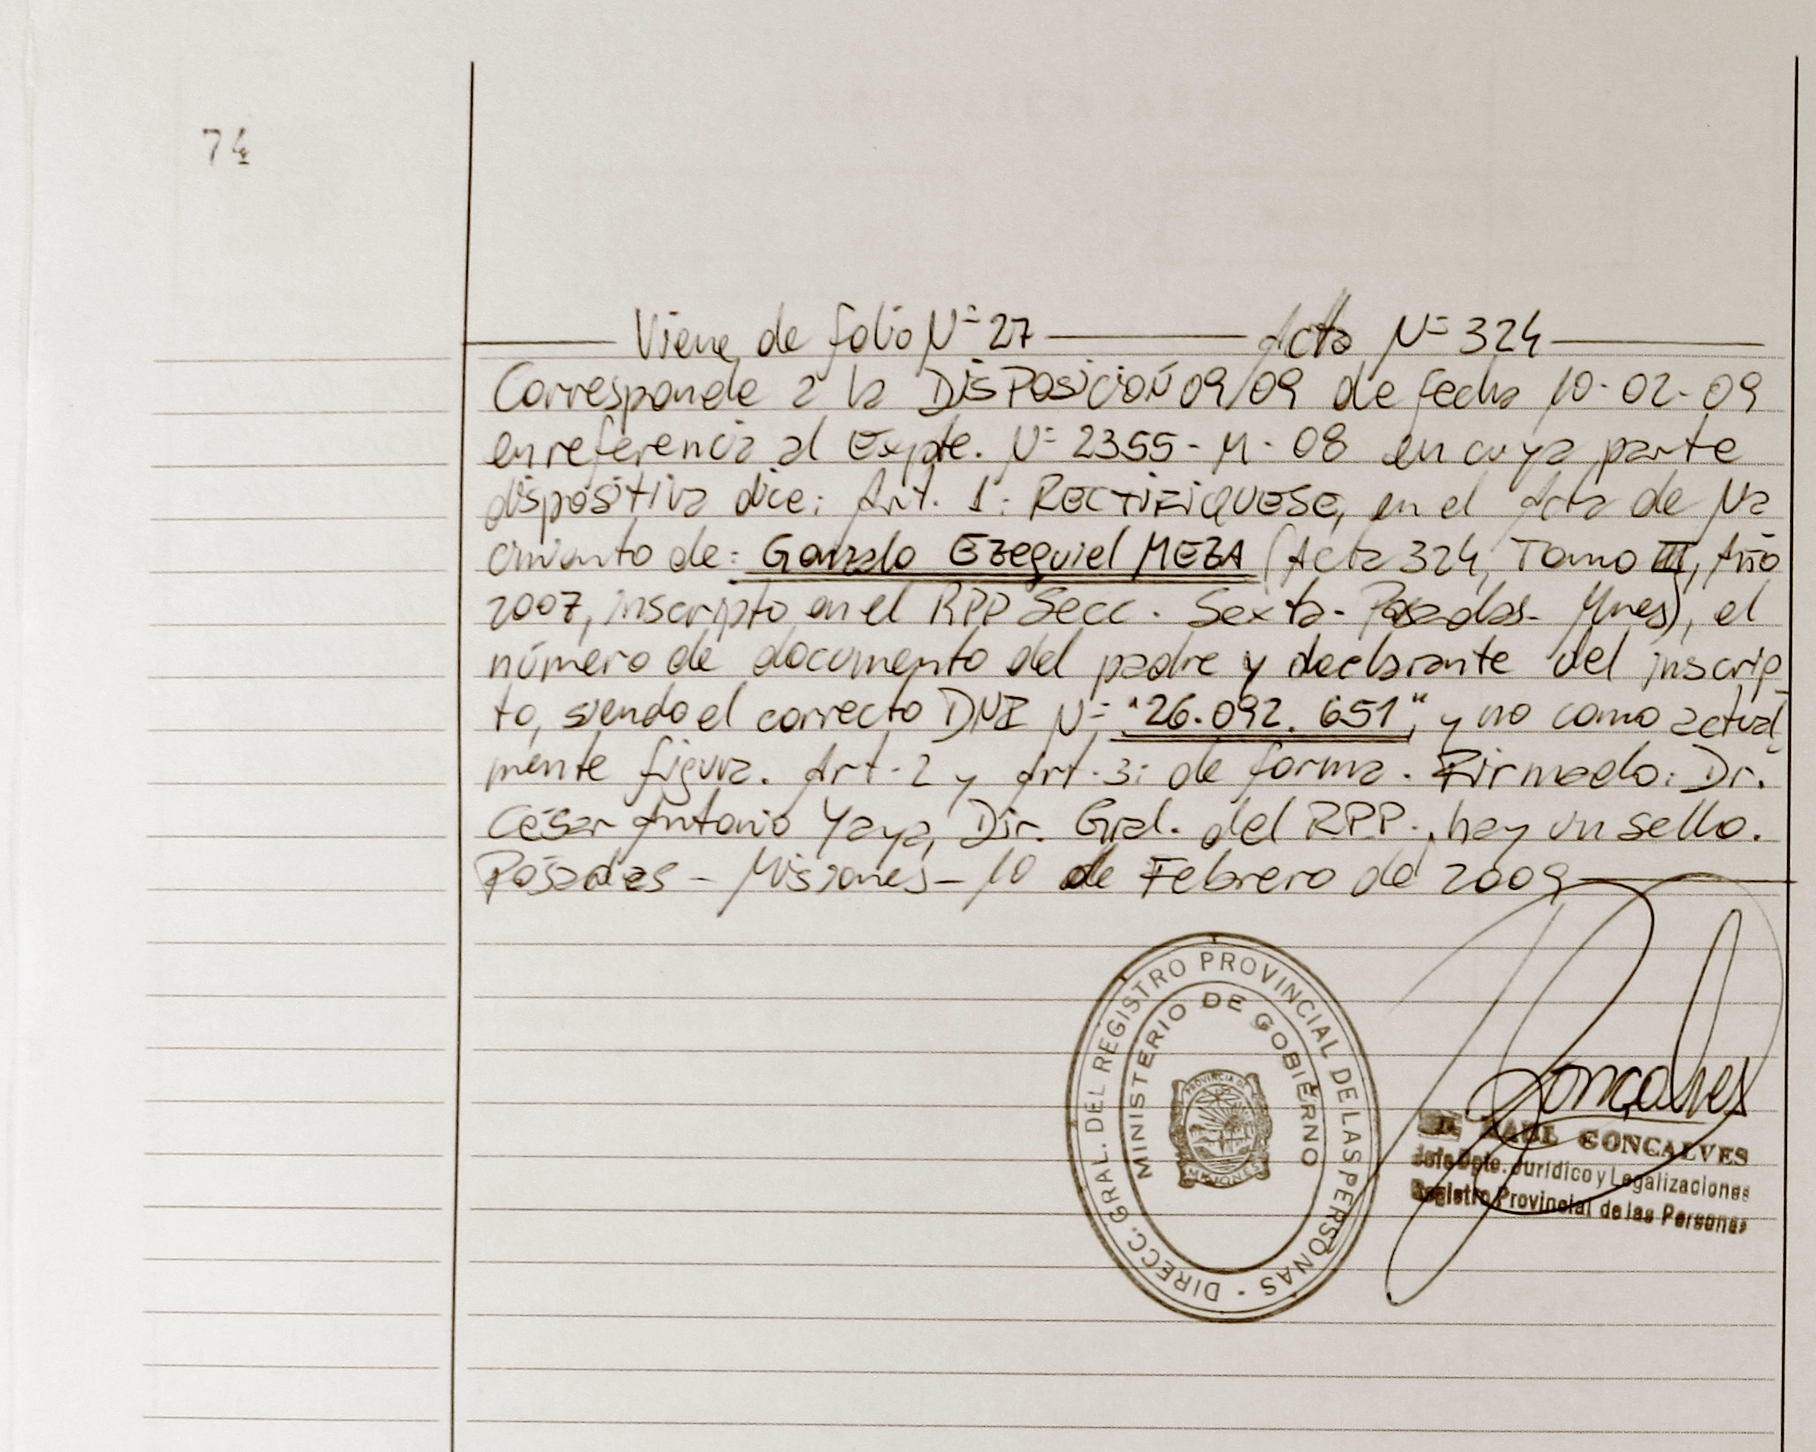 74
Viene de folio Nº 27 Acta Nº 324
Corresponde a la DISPOSICIÓN 09/09 de fecha 10-02-09
en referencia al Expte. Nº 2355-M-08 en cuya parte
dispositiva dice: Art. 1: RECTIFIQUESE, en el Acta de Na
cimiento de: Gonzalo Ezequiel MEZA (Acta 324, Tomo III, Año
2007, inscripto en el RPP Secc. Sexta- Posadas- Mnes), el
número de documento del padre y declarante del inscrip_
to, siendo el correcto DNI Nº "26.092.651", y no como actual_
mente figura. Art. 2 y Art. 3: de forma. Firmado: Dr.
César Antonio Yaya, Dir. Gral. del RPP., hay un sello.
Posadas - Misiones - 10 de Febrero de 2009
DIRECC. GRAL. DEL REGISTRO PROVINCIAL DE LAS PERSONAS -
MINISTERIO DE GOBIERNO
PROVINCIA DE
MISIONES
Goncalves
GONCALVES
Jefe Dpto. Jurídico y Legalizaciones
Registro Provincial de las Personas